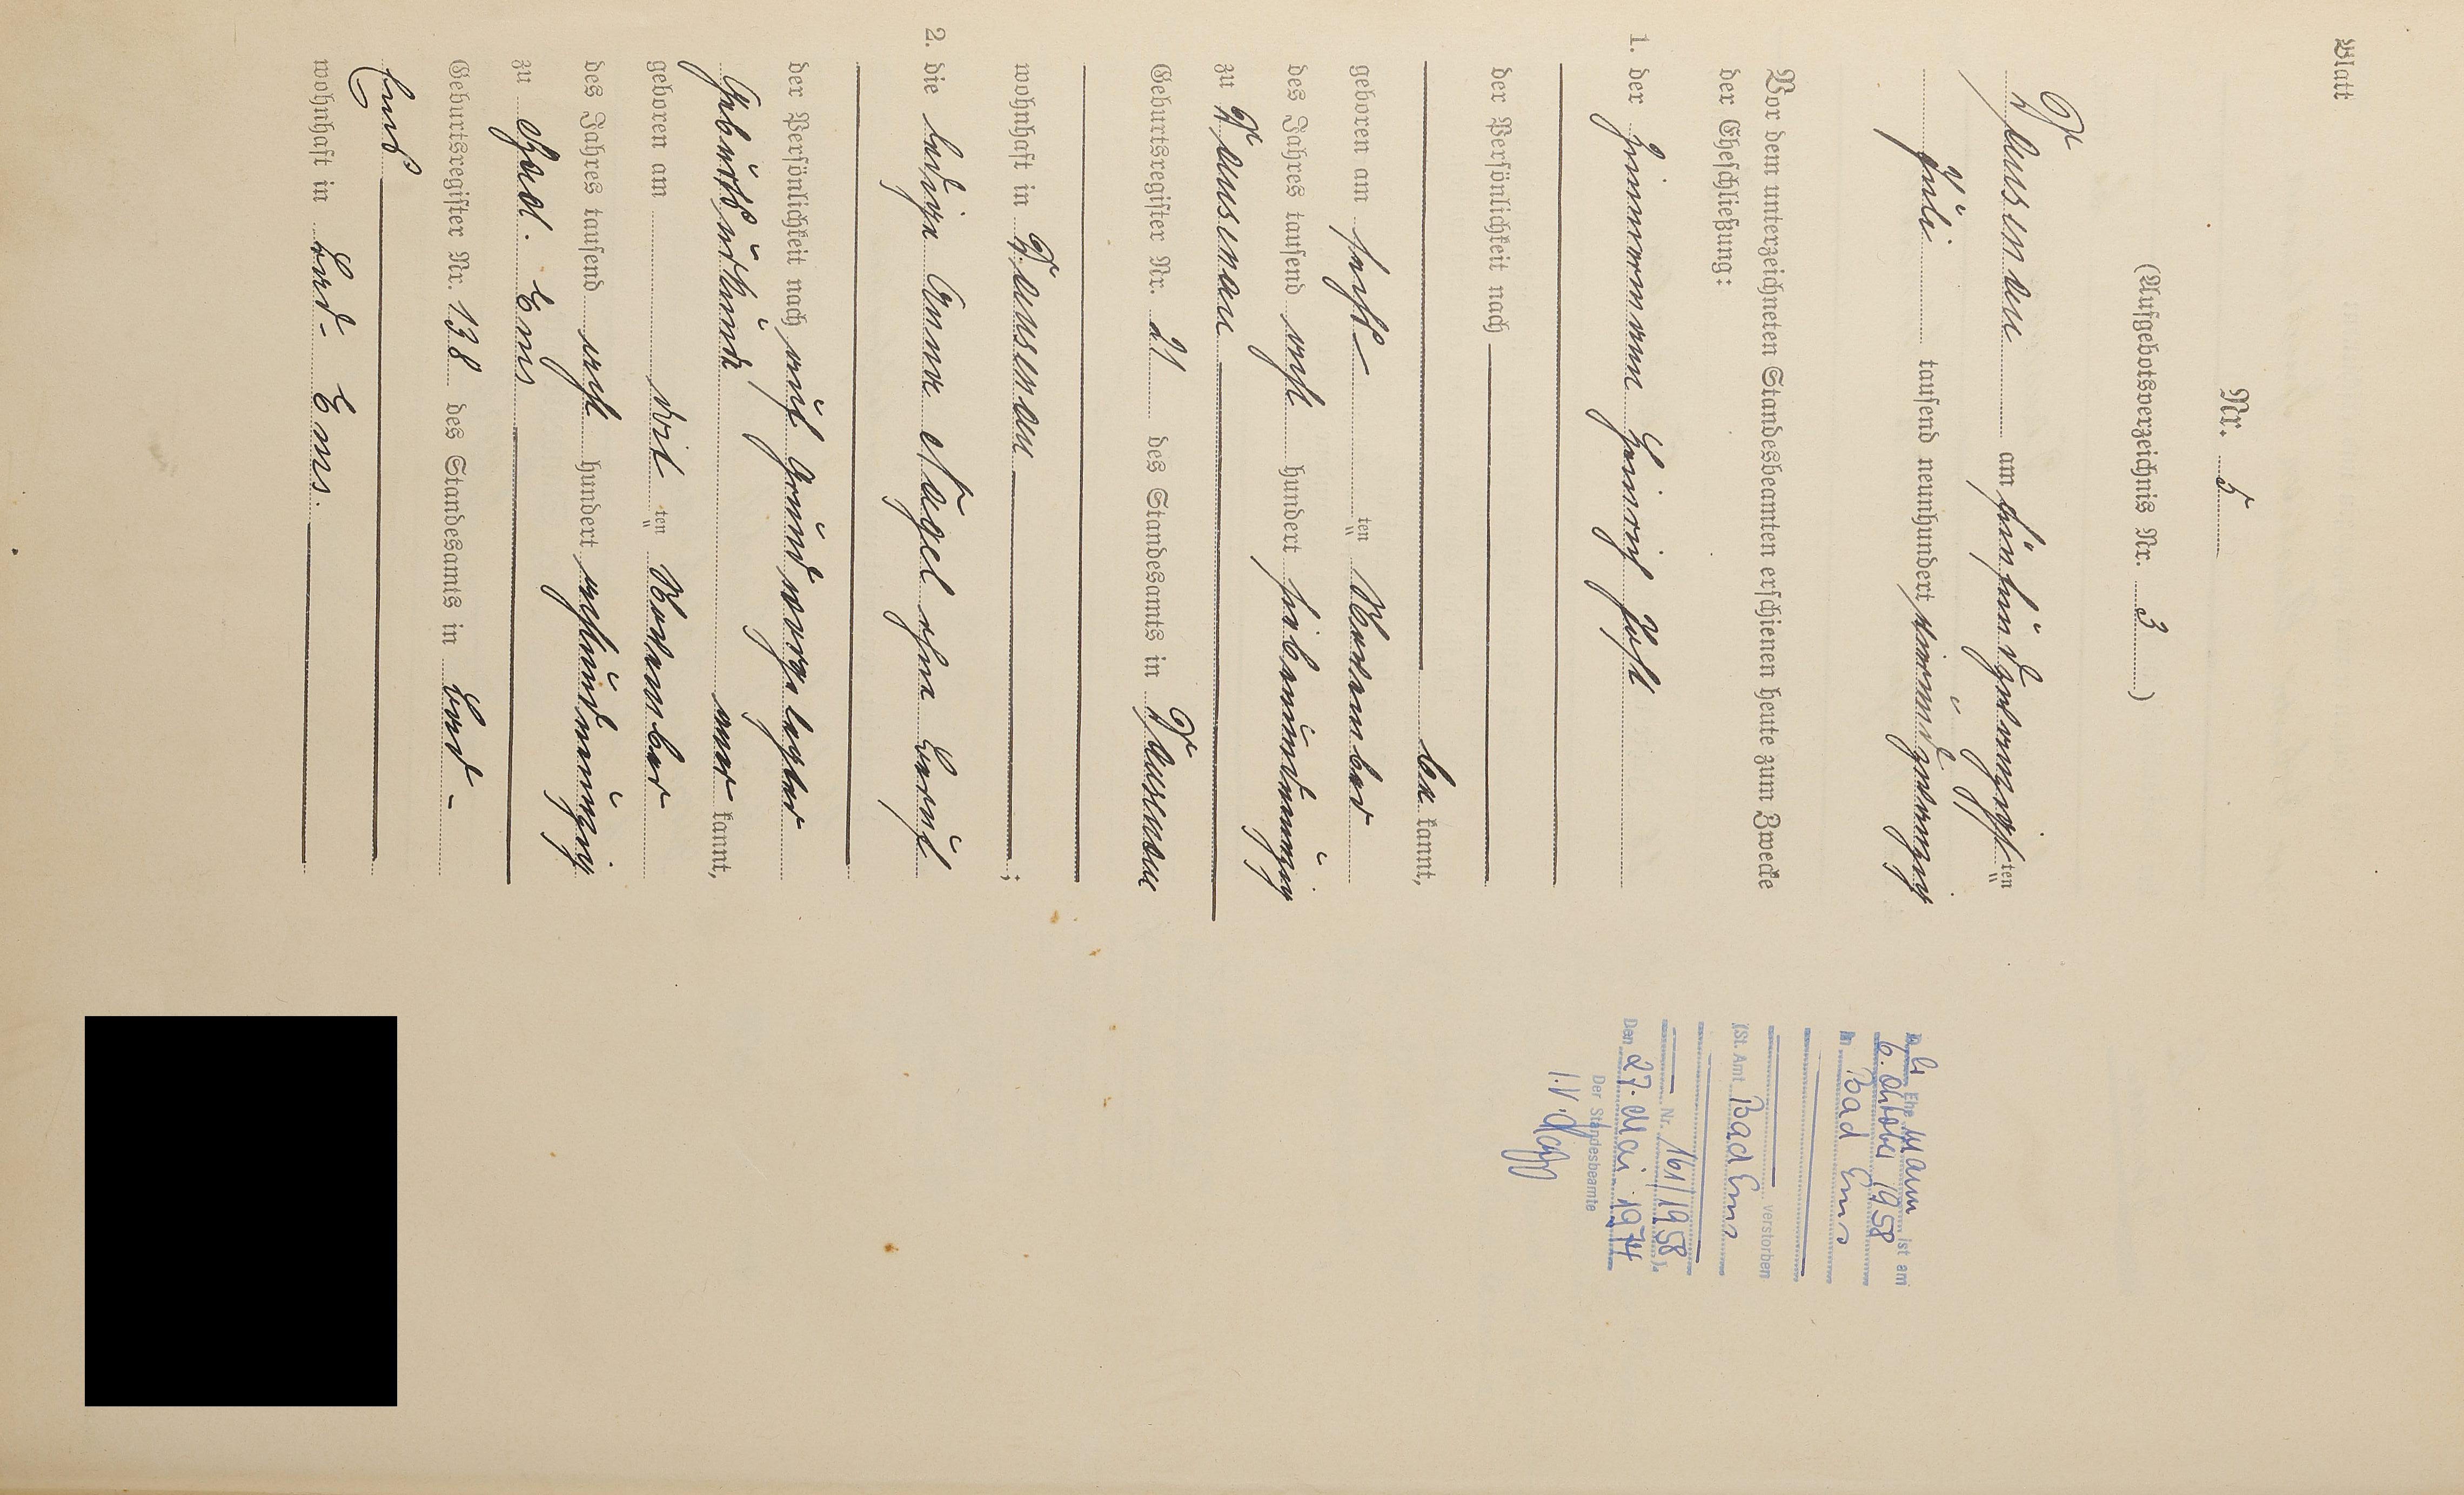 Blatt
Nr. 5
(Aufgebotsverzeichnis Nr. 3)
Dausenau am fünfundzwanzigsten
Juli tausend neunhundert neunundzwanzig
Vor dem unterzeichneten Standesbeamten erschienen heute zum Zwecke
der Eheschließung:
1. der Zimmermann Heinrich Jost
der Persönlichkeit nach
be kannt,
geboren am sechs ten November
des Jahres tausend acht hundert siebenundneunzig
zu Dausenau
Geburtsregister Nr. 21 des Standesamts in Dausenau
wohnhaft in Dausenau ;
2. die ledige Anna Nagel ohne Beruf
der Persönlichkeit nach auf Grund vorgelegter
Geburtsurkunde aner kannt,
geboren am drit ten November
des Jahres tausend acht hundert achtundneunzig
zu Spork. Ems
Geburtsregister Nr. 138 des Standesamts in Bad-
Ems
wohnhaft in Bad-Ems.
Der Ehe mann ist am
6. Oktober 1958
in Bad Ems
verstorben
(St. Amt Bad Ems
Nr. 161/1958).
Den 27. Mai 1974
Der Standesbeamte
I.V.